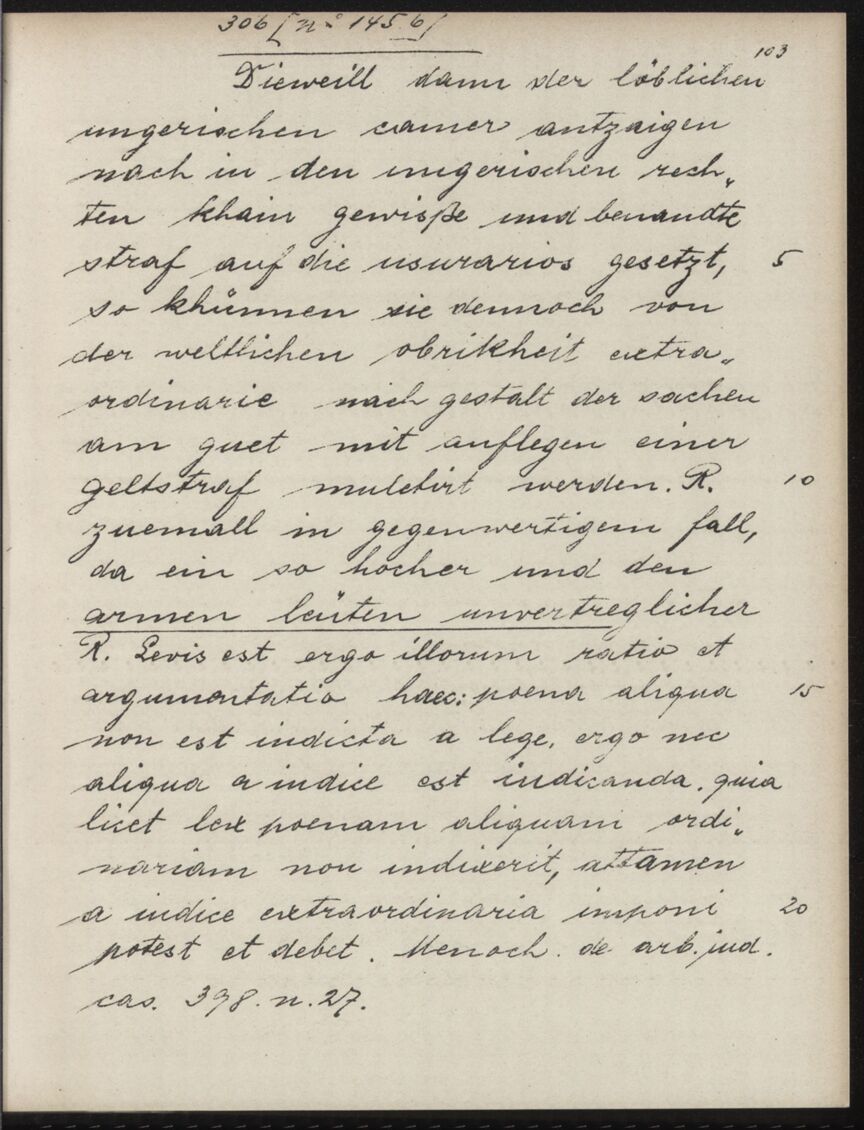 306 [n° 145 b]
103
Dieweill dann der löblichen
ungerischen camer antzaigen
nach in den ungerischen rech„
ten khain gewiße und benandte
straf auf die usurarios gesetzt, 5
so khünnen sie dennoch von
der weltlichen obrikheit extra„
ordinarie nach gestalt der sachen
am guet mit auflegen einer
geltstraf mulctirt werden. R. 10
zuemall in gegenwertigem fall,
da ein so hocher und den
armen leüten unvertreglicher
R. Levis est ergo illorum ratio et
argumentatio haec: poena aliqua 15
non est indicta a lege, ergo nec
aliqua a iudice est indicanda. quia
licet lex poenam aliquam ordi„
nariam non indixerit, attamen
a iudice extraordinaria imponi 20
potest et debet. Menoch. de arb. iud.
cas. 398. n. 27.